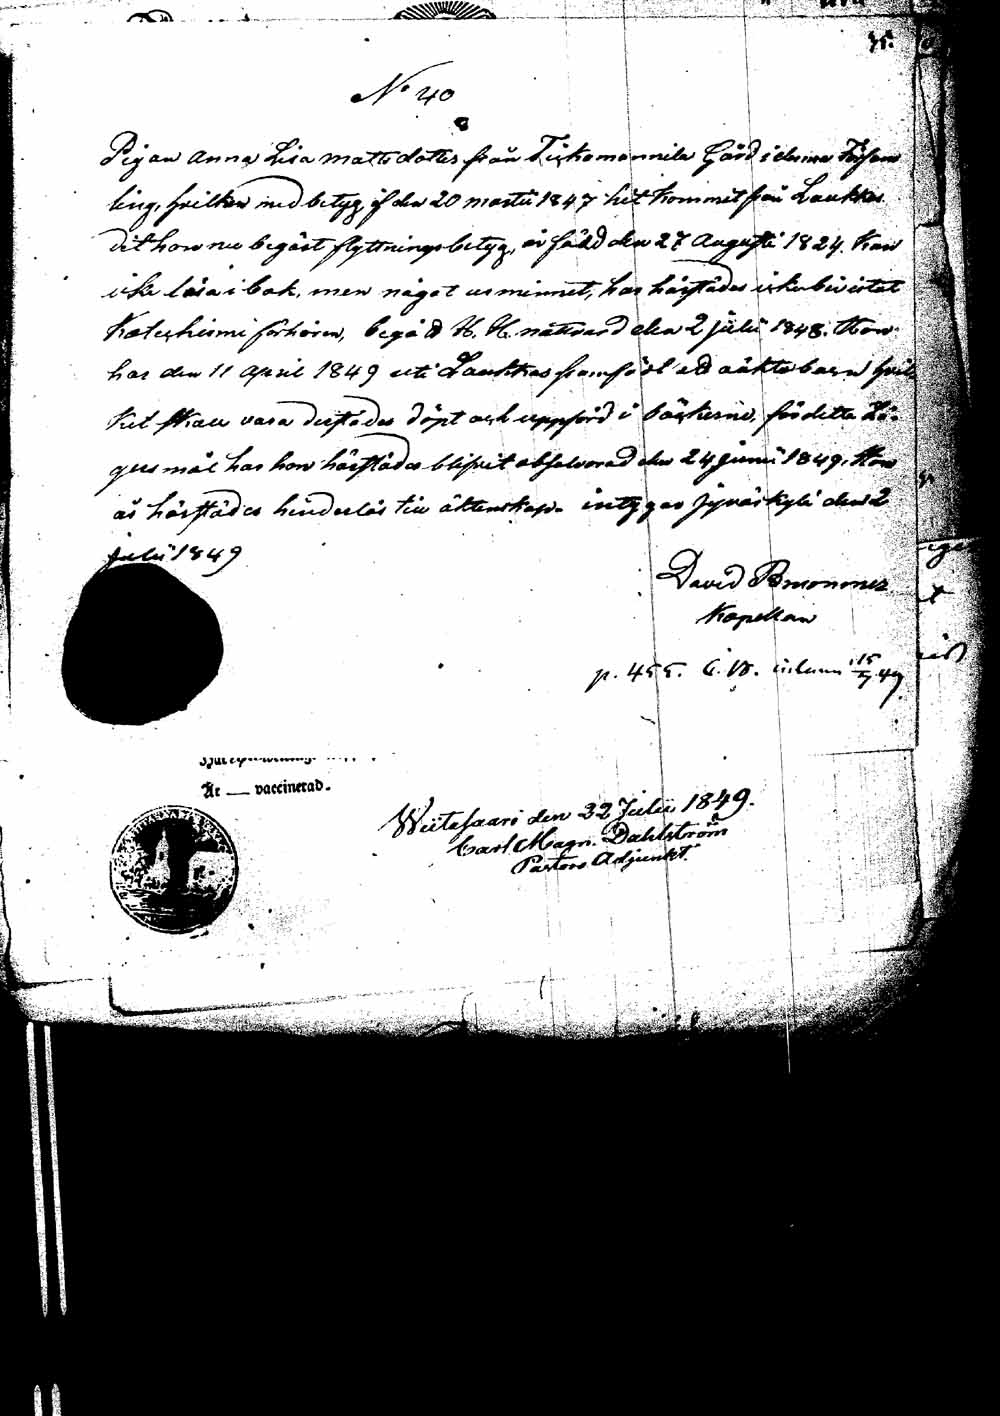 No 40
Pigan Anna Lisa Matts dotter från Tiskamannila Gård i denna Försam
ling, hvilken med betyg af den 20 Martii 1847 hit kommit från Laukkas
dit hon nu begärt flyttningsbetyg, är född den 27 Augusti 1824. Kan
icke läsa i bok, men något ur minnet, har härstädes icke bevistat
Katechismi förhören, begåd H. H. nattvard den 2 Julii 1848. Hon
har den 11 April 1849 uti Laukkas framfödt ett oäkta barn hvil
ket skall vara derstädes döpt och uppförd i böckerne, för detta Lä-
gersmål har hon härstädes blifvit absolverad den 24 Junii 1849. Hon
är härstädes hinderlös till äktenskap. intygar Jyväskylä den 2
Julii 1849
David Brummer
Kapellan
p. 455.
Är — vaccinerad.
Wiitasaari den 22 Julii 1849.
Carl Magn. Dahlström
Pastors Adjunkt.